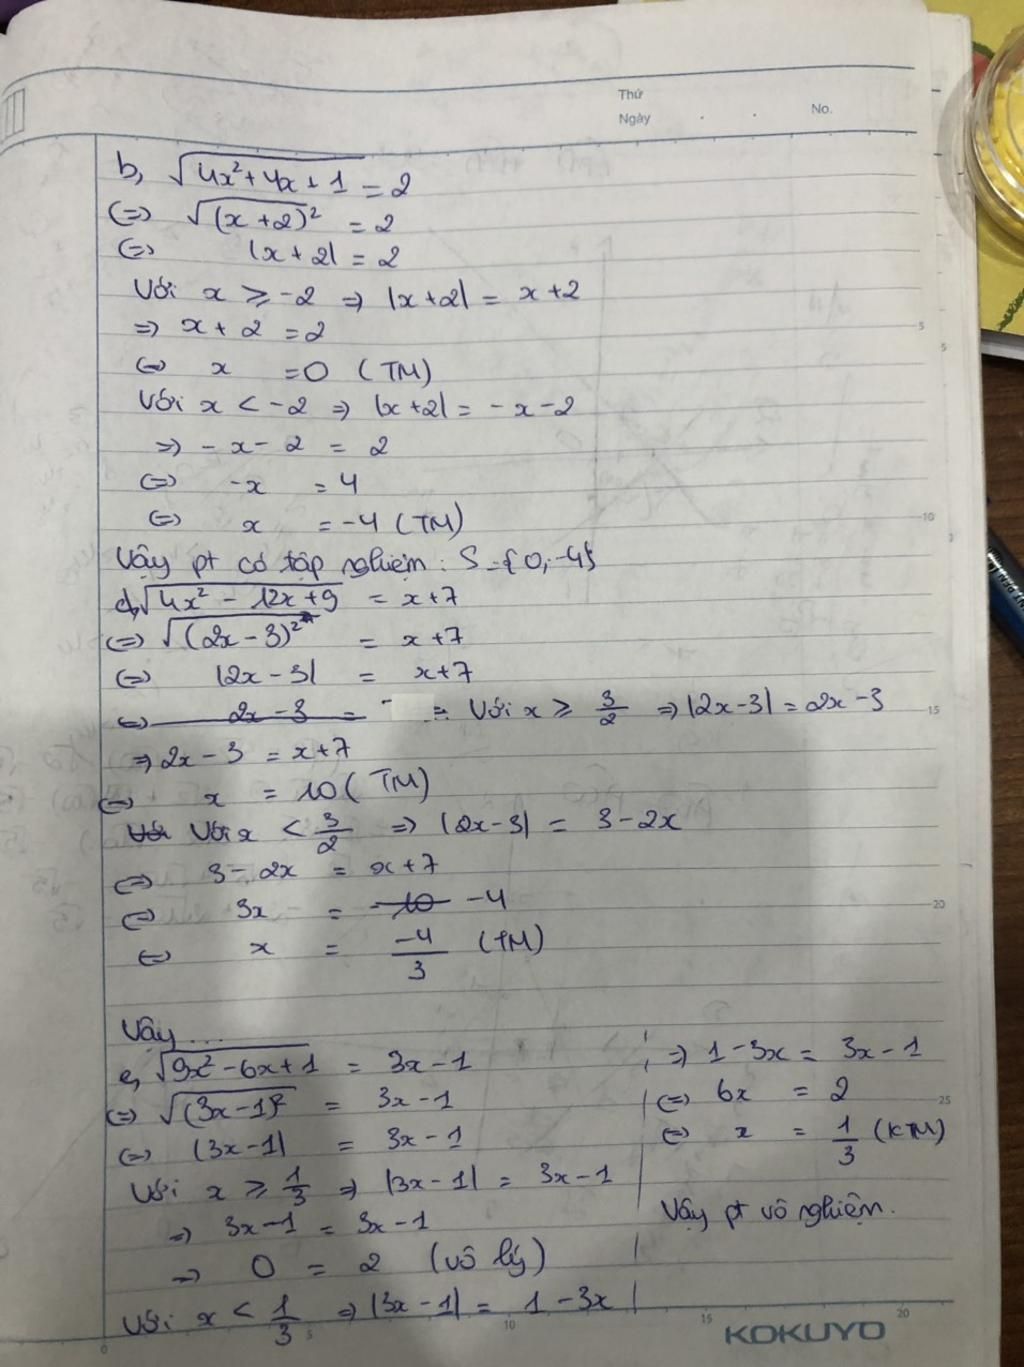 Thứ
Ngày . . No.
b, √(4x²+4x+1) = 2
(=) √((x+2)²) = 2
(=) |x+2| = 2
Với x ≥ -2 => |x+2| = x+2
=> x + 2 = 2
(=) x = 0 (TM)
Với x < -2 => |x+2| = -x-2
=> -x-2 = 2
(=) -x = 4
(=) x = -4 (TM)
Vậy pt có tập nghiệm : S = {0;-4}
d, √(4x² - 12x+9) = x+7
(=) √((2x-3)²) = x+7
(=) |2x-3| = x+7
(=) 2x-3 = = Với x ≥ 3/2 => |2x-3| = 2x-3
=> 2x-3 = x+7
(=) x = 10 (TM)
Với Với x < 3/2 => |2x-3| = 3-2x
(=) 3-2x = x+7
(=) 3x = -10 -4
(=) x = -4/3 (TM)
Vậy ...
e, √(9x²-6x+1) = 3x-1
(=) √((3x-1)²) = 3x-1
(=) |3x-1| = 3x-1
Với x ≥ 1/3 => |3x-1| = 3x-1
=> 3x-1 = 3x-1
=> 0 = 2 (vô lý)
Với x < 1/3 => |3x-1| = 1-3x
=> 1-3x = 3x-1
(=) 6x = 2
(=) x = 1/3 (KTM)
Vậy pt vô nghiệm.
5
5
10
15
20
25
0 5 10 15 20
KOKUYO